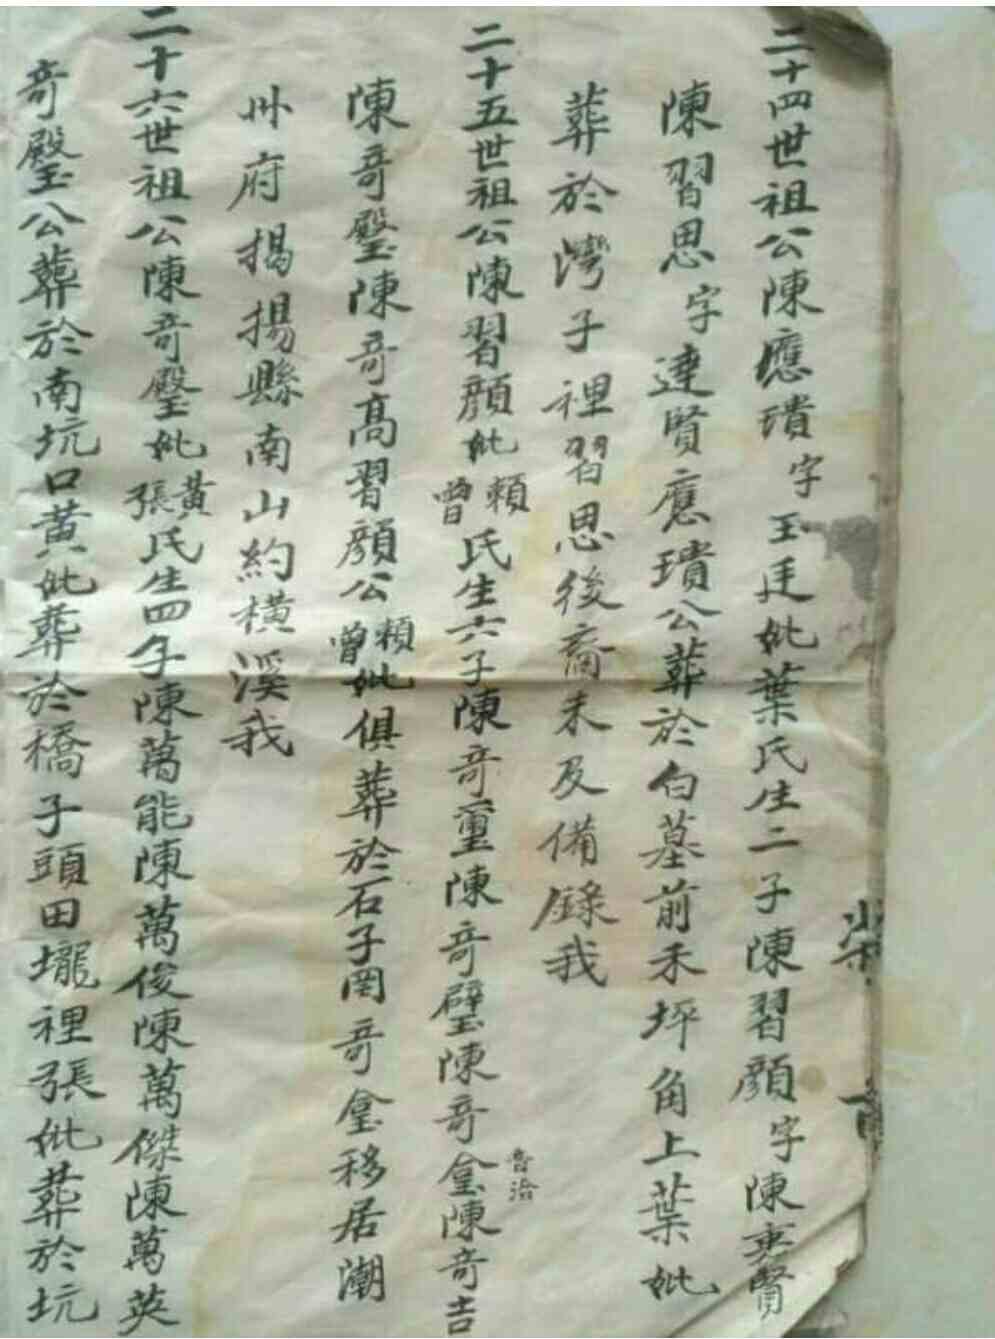 二十四世祖公陳應瓄字玉廷妣葉氏生二子陳習顔字陳東賢
陳習思字達賢應瓄公葬於白墓前禾坪角上葉妣
葬於灣子裡習思後裔未及備錄我
二十五世祖公陳習顔妣賴曾氏生六子陳奇璽陳奇璧陳奇陳奇吉
陳哥陳哥高習顔公賴曾妣俱葬於石子岡哥移居潮
州府揭揚縣南山約橫溪我
二十六世祖公陳奇妣黃張氏生四子陳萬能陳萬俊陳萬傑陳萬英
奇公葬於南坑口黄妣葬於橋子頭田壠裡張妣葬於坑